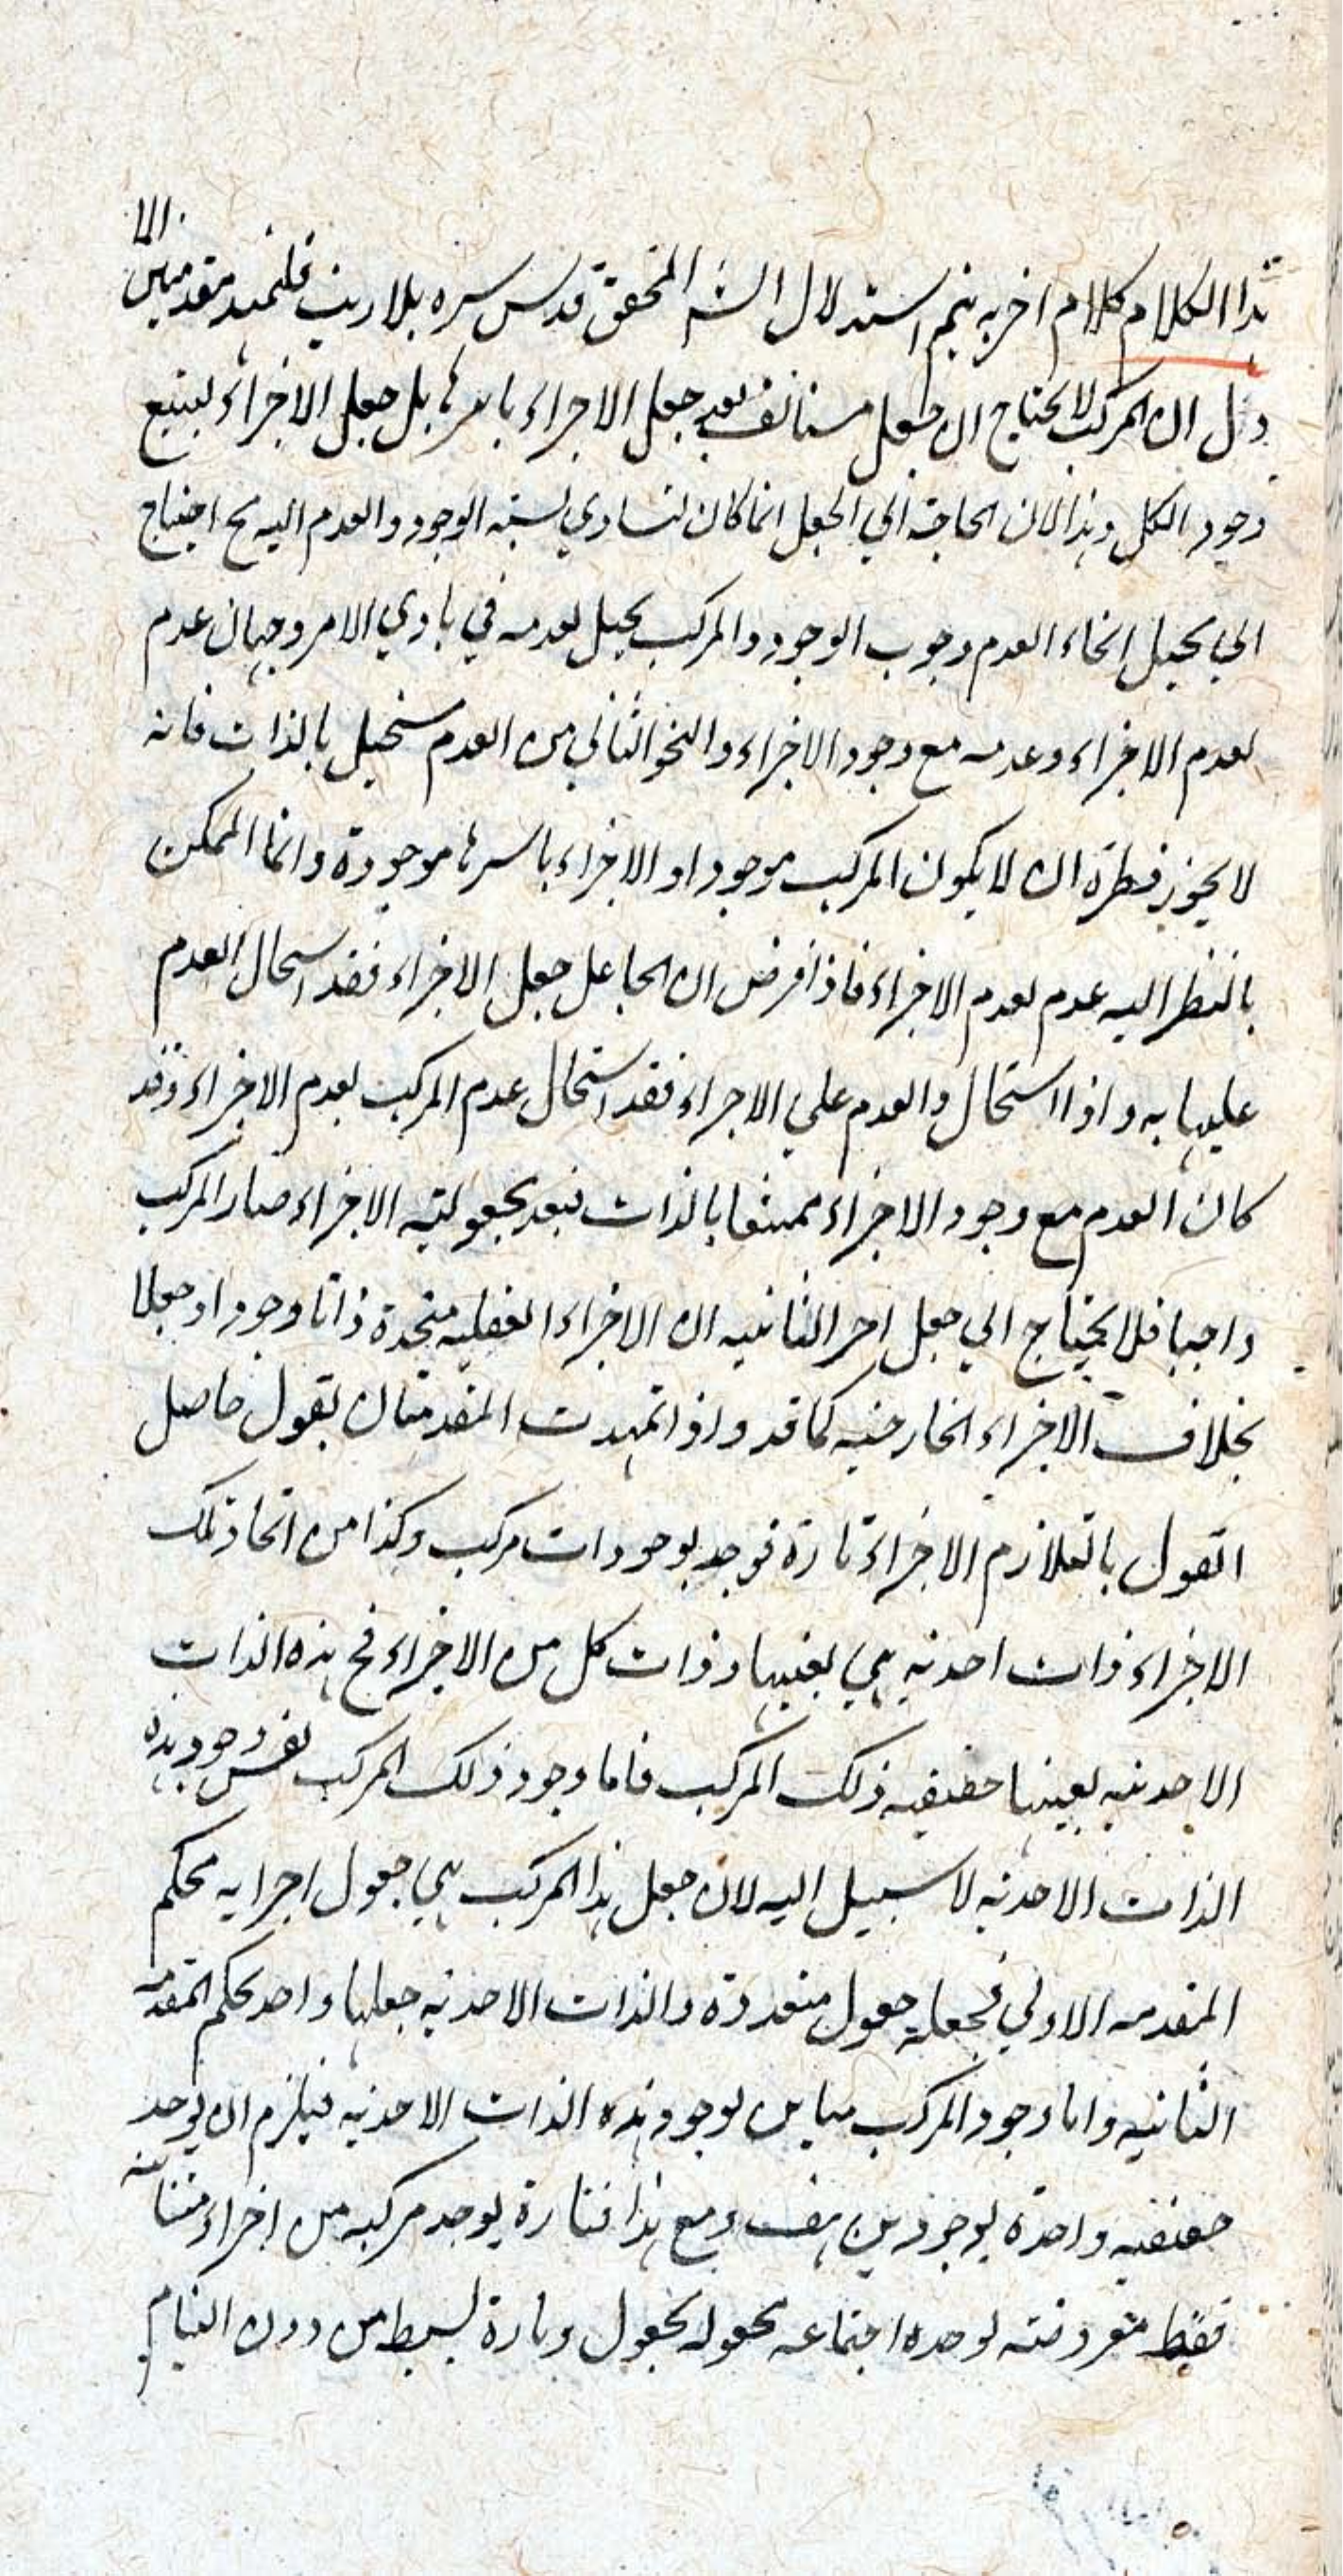 هذا الكلام كلام اخر به يتم استدلال الش المحقق قدس سره بلا ريب فلنمهد مقدمتين الا
ول ان المركب لا يحتاج الى جعل مستانف بعد جعل الاجزاء باسرها بل جعل الاجزاء يستتبع
وجود الكل وهذا لان الحاجة الي الجعل انما كان لتساوي نسبة الوجود والعدم اليه فح احتياج
الي محيل انحاء العدم وجوب الوجود والمركب يحيل لعدمه في بادي الامر وجهان عدم
لعدم الاجزاء وعدمه مع وجود الاجزاء والنحو الثاني من العدم مستحيل بالذات فانه
لا يجوز فطرة ان لا يكون المركب موجودا والاجزاء باسرها موجودة وانما الممكن
بالنظر اليه عدم لعدم الاجزاء فاذا فرض ان الجاعل جعل الاجزاء فقد استحال العدم
عليها به واذا استحال والعدم علي الاجزاء فقد استحال عدم المركب لعدم الاجزاء وقد
كان العدم مع وجود الاجزاء ممتنعا بالذات فبعد مجعولية الاجزاء صار المركب
واجبا فلا يحتاج الي جعل اخر الثانيه ان الاجزاء العقليه متحدة ذاتا وجودا وجعلا
بخلاف الاجزاء الخارجيه كما قد واذا تمهدت المقدمتان نقول حاصل
القول بالتلازم الاجزاء تارة توجد بوجودات مركب وكذا من اتحاد تلك
الاجزاء ذات احديه هي بعينها وذات كل من الاجزاء فح هذه الذات
الاحديه بعينها حقيقيه ذلك المركب فاما وجود ذلك المركب نفس وجود هذه
الذات الاحديه لا سبيل اليه لان جعل هذا المركب هي جعول اجزايه بحكم
المقدمه الاولي فجعله جعول متعددة والذات الاحديه جعلها واحد بحكم المقدمه
الثانيه واما وجود المركب مباين لوجود هذه الذات الاحديه فيلزم ان يوجد
حقيقيه واحدة بوجودين هف ومع هذا فتارة يوجد مركبه من اجزاء متباينه
فقط معروضته لوحده اجتماعه مجعوله بجعول وتارة بسيط من دون التيام